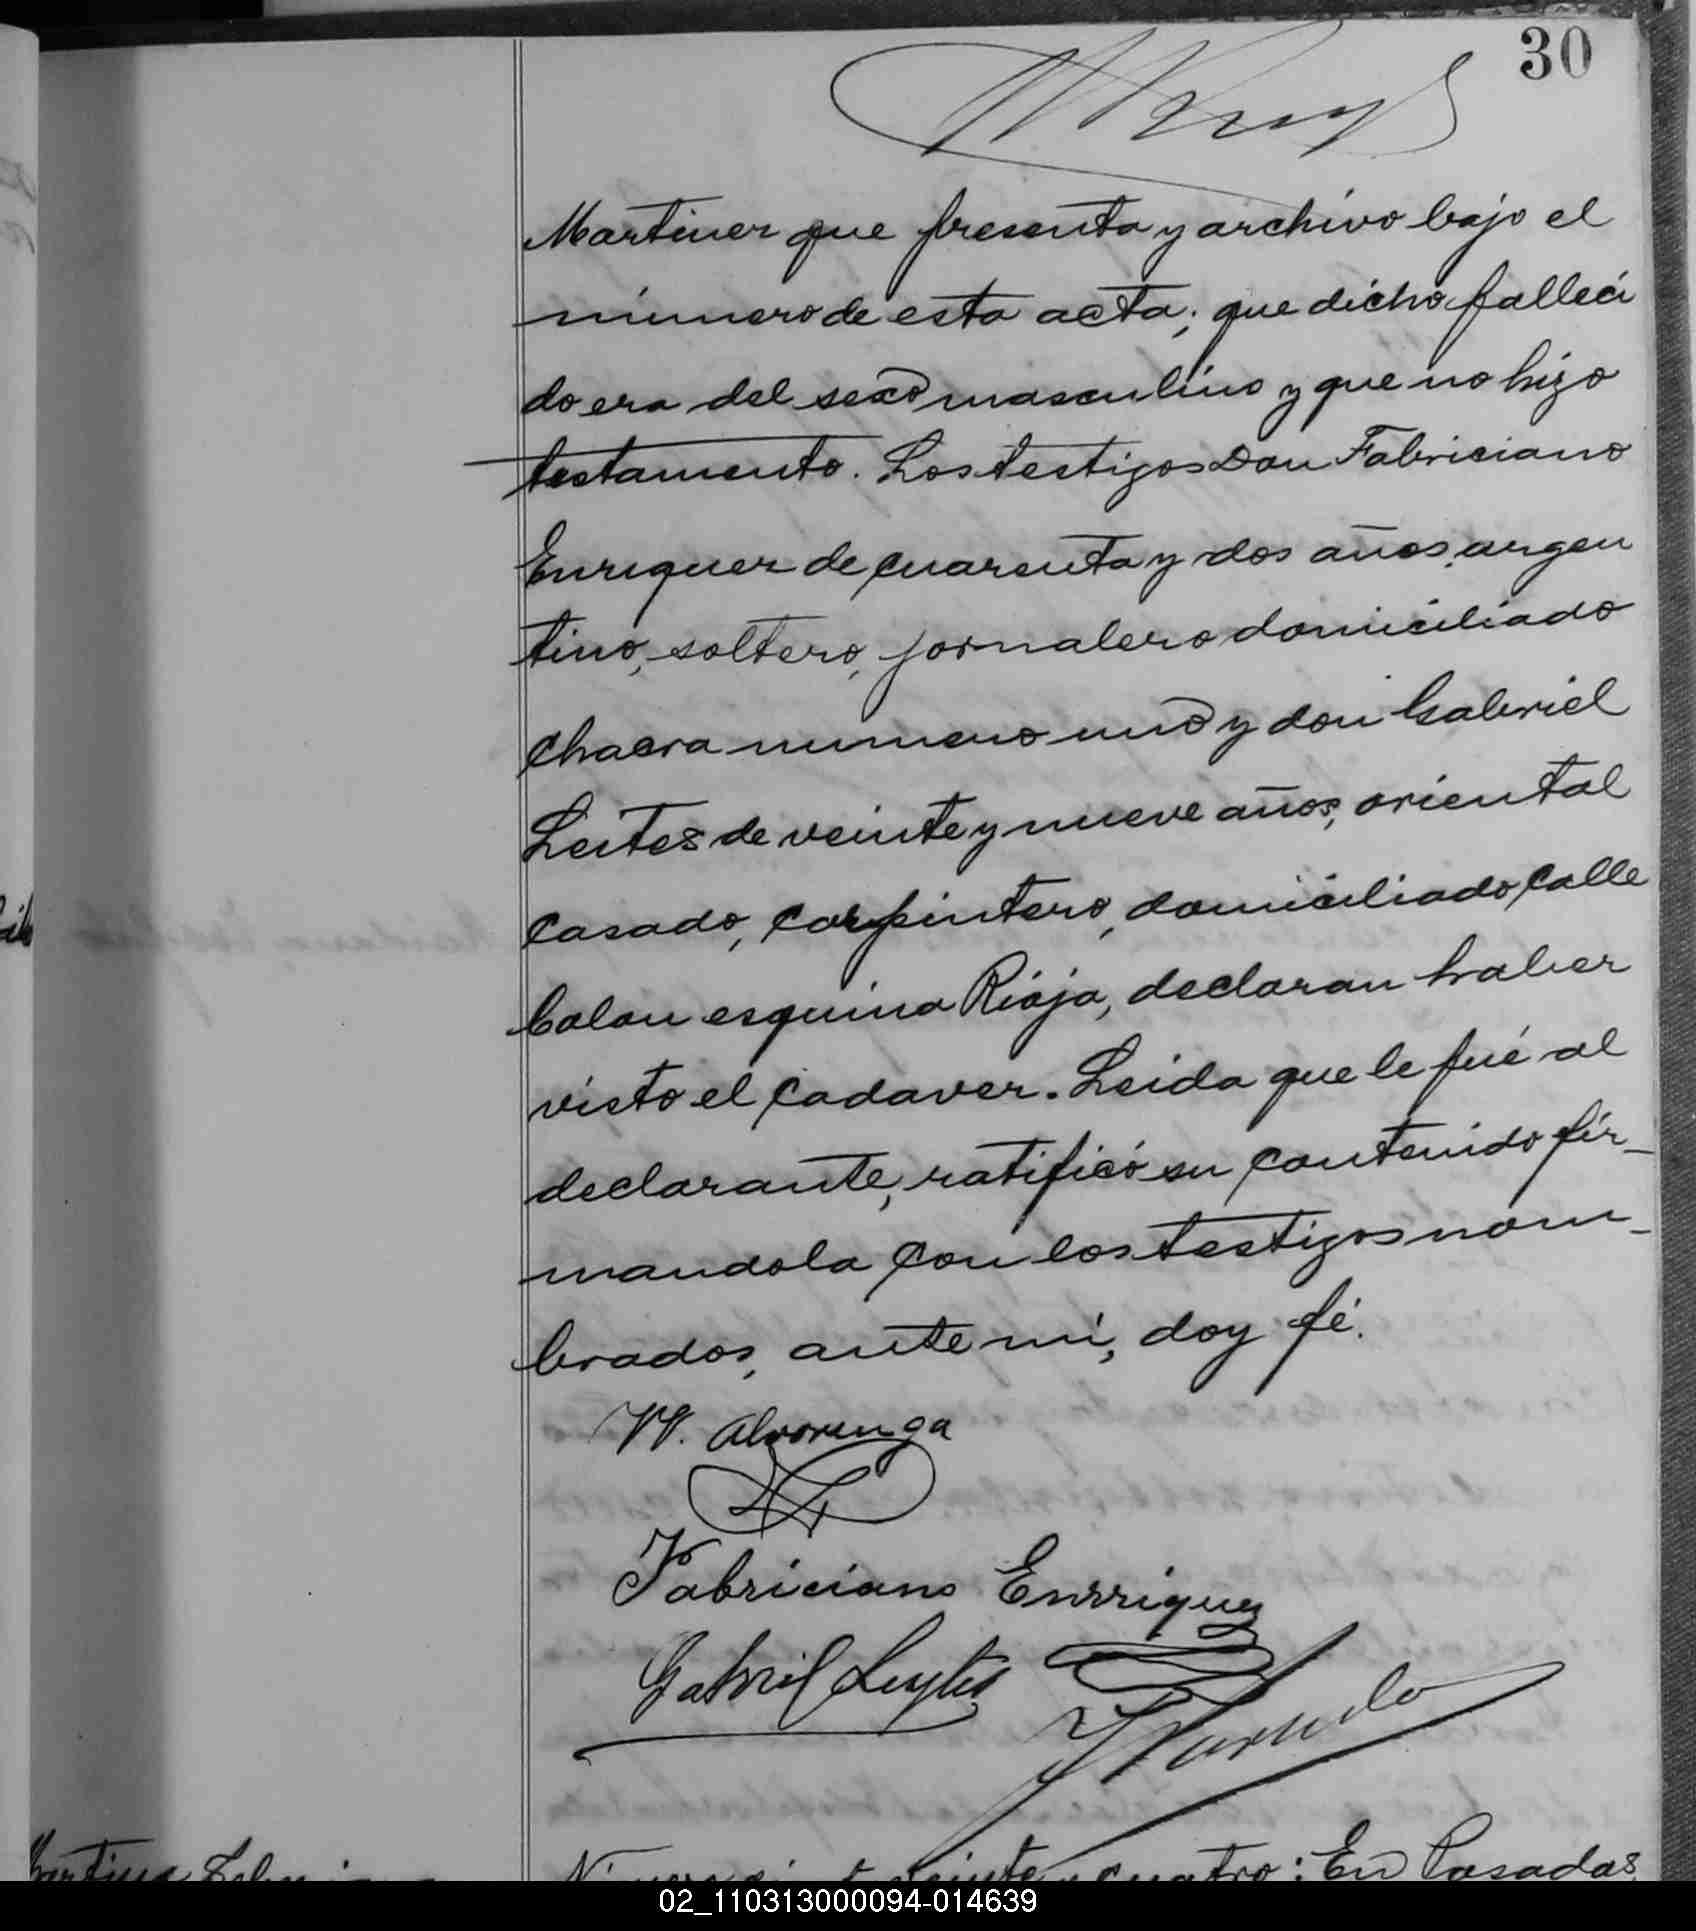 30
Martinez que presenta y archivo bajo el
número de esta acta; que dicho falleci
do era del sexo masculino y que no hizo
testamento. Los testigos Don Fabriciano
Enriquez de cuarenta y dos años, argen
tino, soltero, jornalero domiciliado
chacra numero uno y don Gabriel
Leites de veinte y nueve años, oriental
casado, carpintero, domiciliado, calle
Colon esquina Rioja, declaran haber
visto el cadaver. Leida que le fué al
declarante, ratificó su contenido fir-
mandola con los testigos nom-
brados, ante mi, doy fé.
Alvorenga
Fabriciano Enrriquez
Gabriel Leytes
veinte y cuatro: En Posadas
02_110313000094-014639